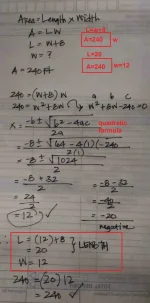 Area = Length x Width
A = L·W
L = W+8
W = ?
A = 240 ft²
A=240 W
L=20
A=240 W=12
240 = (W+8) W
a b c
240 = W² + 8W W² + 8W - 240 = 0
X = -b ± √b² - 4ac
2a
quadratic
formula
= -8 ± √64 - 4(1)(-240)
2(1)
= -8 ± √1024
2
= -8 + 32
2
= -8 - 32
2
= 24
2
= -40
2
= 12
= -20
negative
L = (12) + 8
= 20
W = 12
LENGTH
240 = (20) 12
= 240 ✓